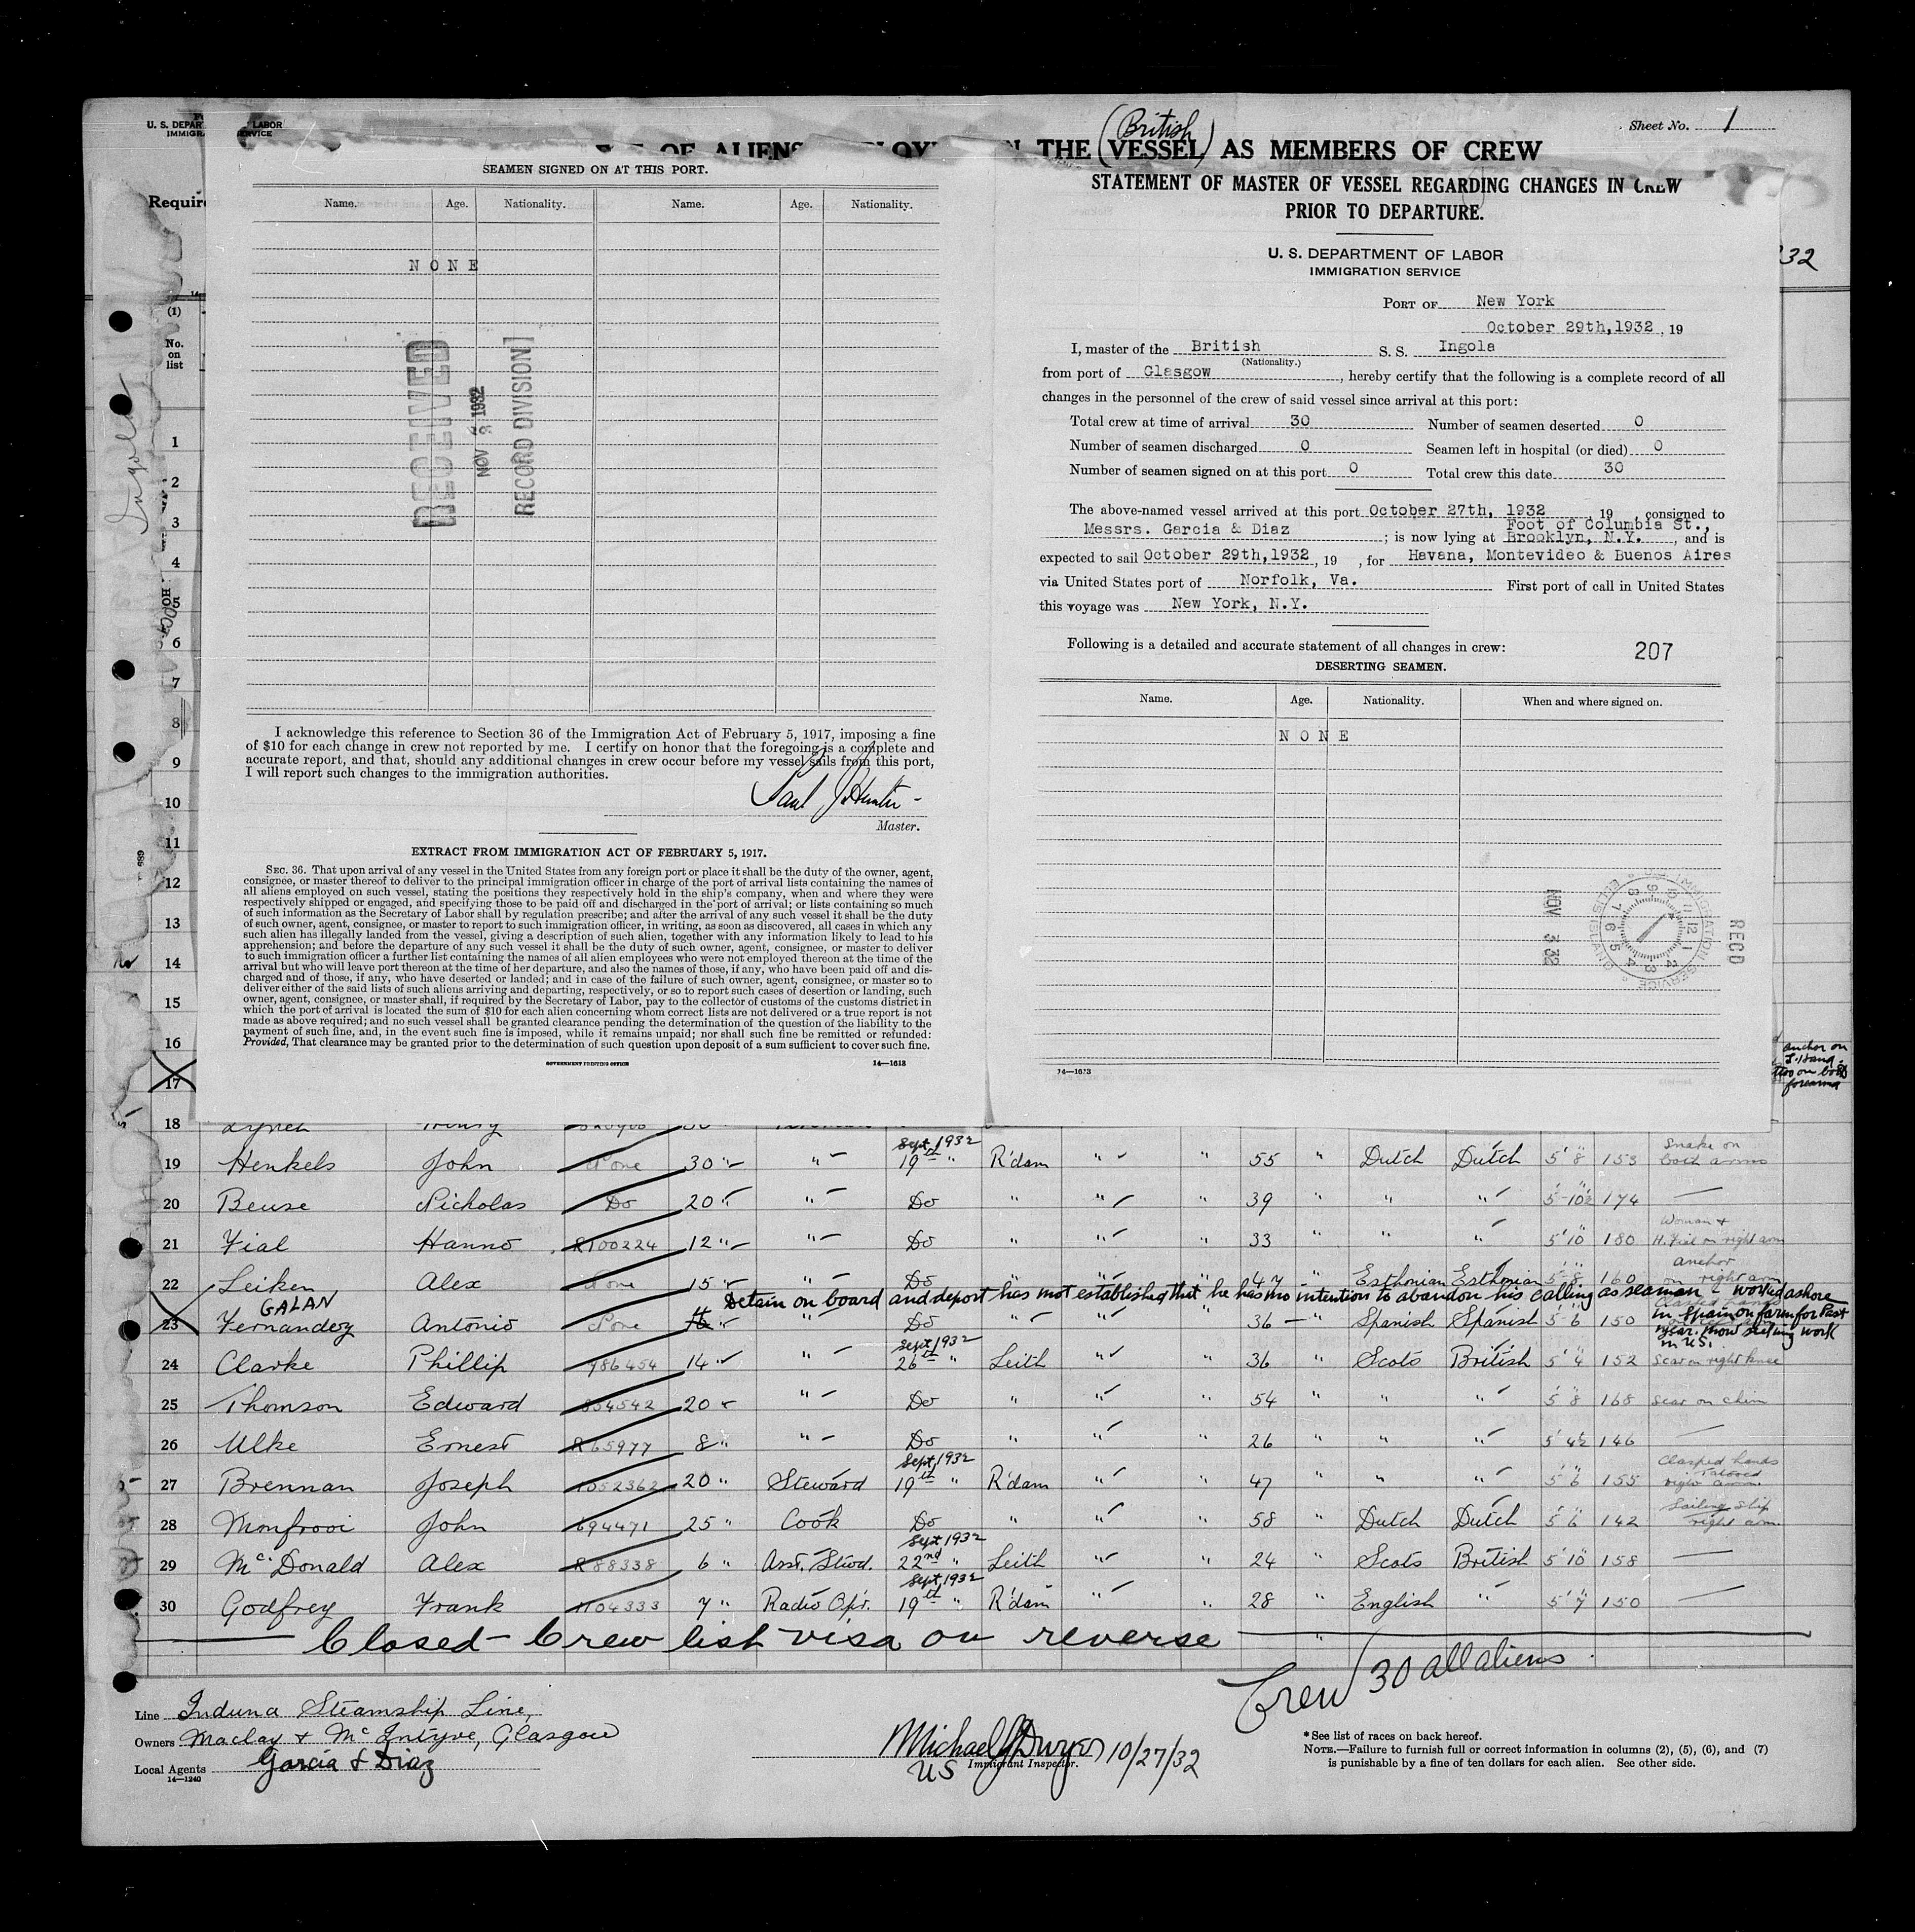 U. S. DEPAR LABOR
IMMIGRA SERVICE
Sheet No. 1
(British)
OF ALIENS THE (VESSEL) AS MEMBERS OF CREW
Require
32
(1)
No.
on
list
1
2
3
4
5
6
7
8
9
10
11
12
13
14
15
16
17
SEAMEN SIGNED ON AT THIS PORT.
Name. Age. Nationality. Name. Age. Nationality.
NONE
RECEIVED
NOV 1932
RECORD DIVISION
I acknowledge this reference to Section 36 of the Immigration Act of February 5, 1917, imposing a fine
of $10 for each change in crew not reported by me. I certify on honor that the foregoing is a complete and
accurate report, and that, should any additional changes in crew occur before my vessel sails from this port,
I will report such changes to the immigration authorities.
Paul J Hunter
Master.
EXTRACT FROM IMMIGRATION ACT OF FEBRUARY 5, 1917.
SEC. 36. That upon arrival of any vessel in the United States from any foreign port or place it shall be the duty of the owner, agent,
consignee, or master thereof to deliver to the principal immigration officer in charge of the port of arrival lists containing the names of
all aliens employed on such vessel, stating the positions they respectively hold in the ship's company, when and where they were
respectively shipped or engaged, and specifying those to be paid off and discharged in the port of arrival; or lists containing so much
of such information as the Secretary of Labor shall by regulation prescribe; and after the arrival of any such vessel it shall be the duty
of such owner, agent, consignee, or master to report to such immigration officer, in writing, as soon as discovered, all cases in which any
such alien has illegally landed from the vessel, giving a description of such alien, together with any information likely to lead to his
apprehension; and before the departure of any such vessel it shall be the duty of such owner, agent, consignee, or master to deliver
to such immigration officer a further list containing the names of all alien employees who were not employed thereon at the time of the
arrival but who will leave port thereon at the time of her departure, and also the names of those, if any, who have been paid off and dis-
charged and of those, if any, who have deserted or landed; and in case of the failure of such owner, agent, consignee, or master so to
deliver either of the said lists of such aliens arriving and departing, respectively, or so to report such cases of desertion or landing, such
owner, agent, consignee, or master shall, if required by the Secretary of Labor, pay to the collector of customs of the customs district in
which the port of arrival is located the sum of $10 for each alien concerning whom correct lists are not delivered or a true report is not
made as above required; and no such vessel shall be granted clearance pending the determination of the question of the liability to the
payment of such fine, and, in the event such fine is imposed, while it remains unpaid; nor shall such fine be remitted or refunded:
Provided, That clearance may be granted prior to the determination of such question upon deposit of a sum sufficient to cover such fine.
GOVERNMENT PRINTING OFFICE 14—1613
STATEMENT OF MASTER OF VESSEL REGARDING CHANGES IN CREW
PRIOR TO DEPARTURE.
U. S. DEPARTMENT OF LABOR
IMMIGRATION SERVICE
PORT OF New York
October 29th,1932, 19
I, master of the British S. S. Ingola
(Nationality.)
from port of Glasgow, hereby certify that the following is a complete record of all
changes in the personnel of the crew of said vessel since arrival at this port:
Total crew at time of arrival 30 Number of seamen deserted 0
Number of seamen discharged 0 Seamen left in hospital (or died) 0
Number of seamen signed on at this port 0 Total crew this date 30
The above-named vessel arrived at this port October 27th, 1932, 19 , consigned to
Messrs. Garcia & Diaz ; is now lying at Foot of Columbia St., Brooklyn, N.Y., and is
expected to sail October 29th,1932, 19 , for Havana, Montevideo & Buenos Aires
via United States port of Norfolk, Va. First port of call in United States
this voyage was New York, N.Y.
Following is a detailed and accurate statement of all changes in crew: 207
DESERTING SEAMEN.
Name. Age. Nationality. When and where signed on.
NONE
NOV 3 32
RECD
14—1613
anchor on
L. Hand
ttoo on both
forearms
18 Lynch Henry
19 Henkels John None 30 " " Sept 1932 19th " R'dam " " 55 " Dutch Dutch 5' 8" 153 Snake on both arms
20 Beuse Nicholas Do 20 " " Do " " " 39 " " " 5' 10½" 174 —
21 Fial Hanno R100224 12 " " Do " " " 33 " " " 5' 10" 180 Woman & H. Fial on right arm
22 Leiken Alex None 15 " " Do " " " 47 " Esthonian Esthonian 5' 8" 160 anchor on right arm
Detain on board and deport has not established that he has no intention to abandon his calling as seaman - worked ashore
in Spain on farm for Past
Year. Now seeking work
in U.S.
GALAN
23 Fernandez Antonio None " " Do " " " 36 — " Spanish Spanish 5' 6" 150
24 Clarke Phillip 986454 14 " " Sept 1932 26th " Leith " " 36 " Scots British 5' 4" 152 Scar on right knee
25 Thomson Edward 854542 20 " " Do " " " 54 " " " 5' 8" 168 Scar on chin
26 Ulke Ernest R65977 8 " " Do " " " 26 " " " 5' 4½" 146 —
27 Brennan Joseph 1052362 20 " Steward Sept 1932 19th " R'dam " " 47 " " " 5' 6" 155 Clasped hands Tatooed right arm
28 Monfrooi John 694471 25 " Cook Do " " " 58 " Dutch Dutch 5' 6" 142 Sailing ship right arm
29 McDonald Alex R88338 6 " Asst. Stwd. Sept 1932 22nd " Leith " " 24 " Scots British 5' 10" 158 —
30 Godfrey Frank 1104333 7 " Radio Opr. Sept 1932 19th " R'dam " " 28 " English " 5' 7" 150 —
Closed - Crew list visa on reverse
Crew 30 all aliens
Line Induna Steamship Line,
Owners Maclay & McIntyre, Glasgow
Local Agents Garcia & Diaz
14—1240
Michael J Dwyer 10/27/32
US Immigrant Inspector.
* See list of races on back hereof.
NOTE.—Failure to furnish full or correct information in columns (2), (5), (6), and (7)
is punishable by a fine of ten dollars for each alien. See other side.